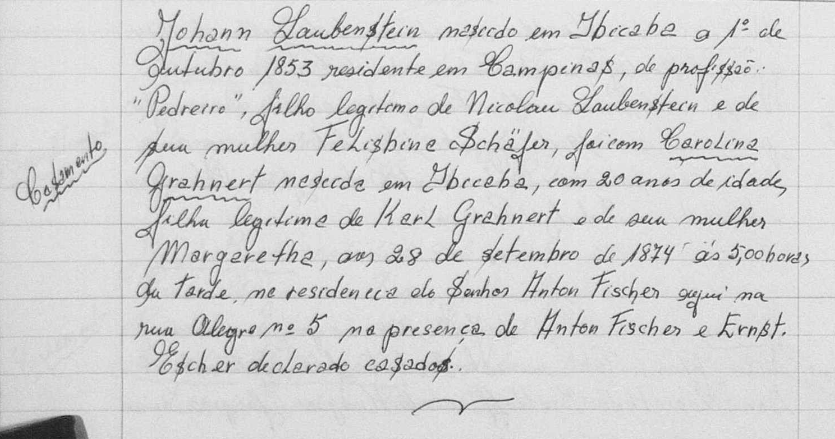 Johann Laubenstein nascido em Ibicaba a 1º de
Outubro 1853 residente em Campinas, de profissão:
"Pedreiro", filho legitimo de Nicolau Laubenstein e de
sua mulher Felisbina Schäfer, foi com Carolina
Casamento
Grahnert nascida em Ibicaba, com 20 anos de idade,
filha legitima de Karl Grahnert e de sua mulher
Margaretha, aos 28 de setembro de 1874 às 5,00 horas
da tarde, na residencia do Senhor Anton Fischer aqui na
rua Alegre nº 5 na presença de Anton Fischer e Ernst.
Escher declarado casados.